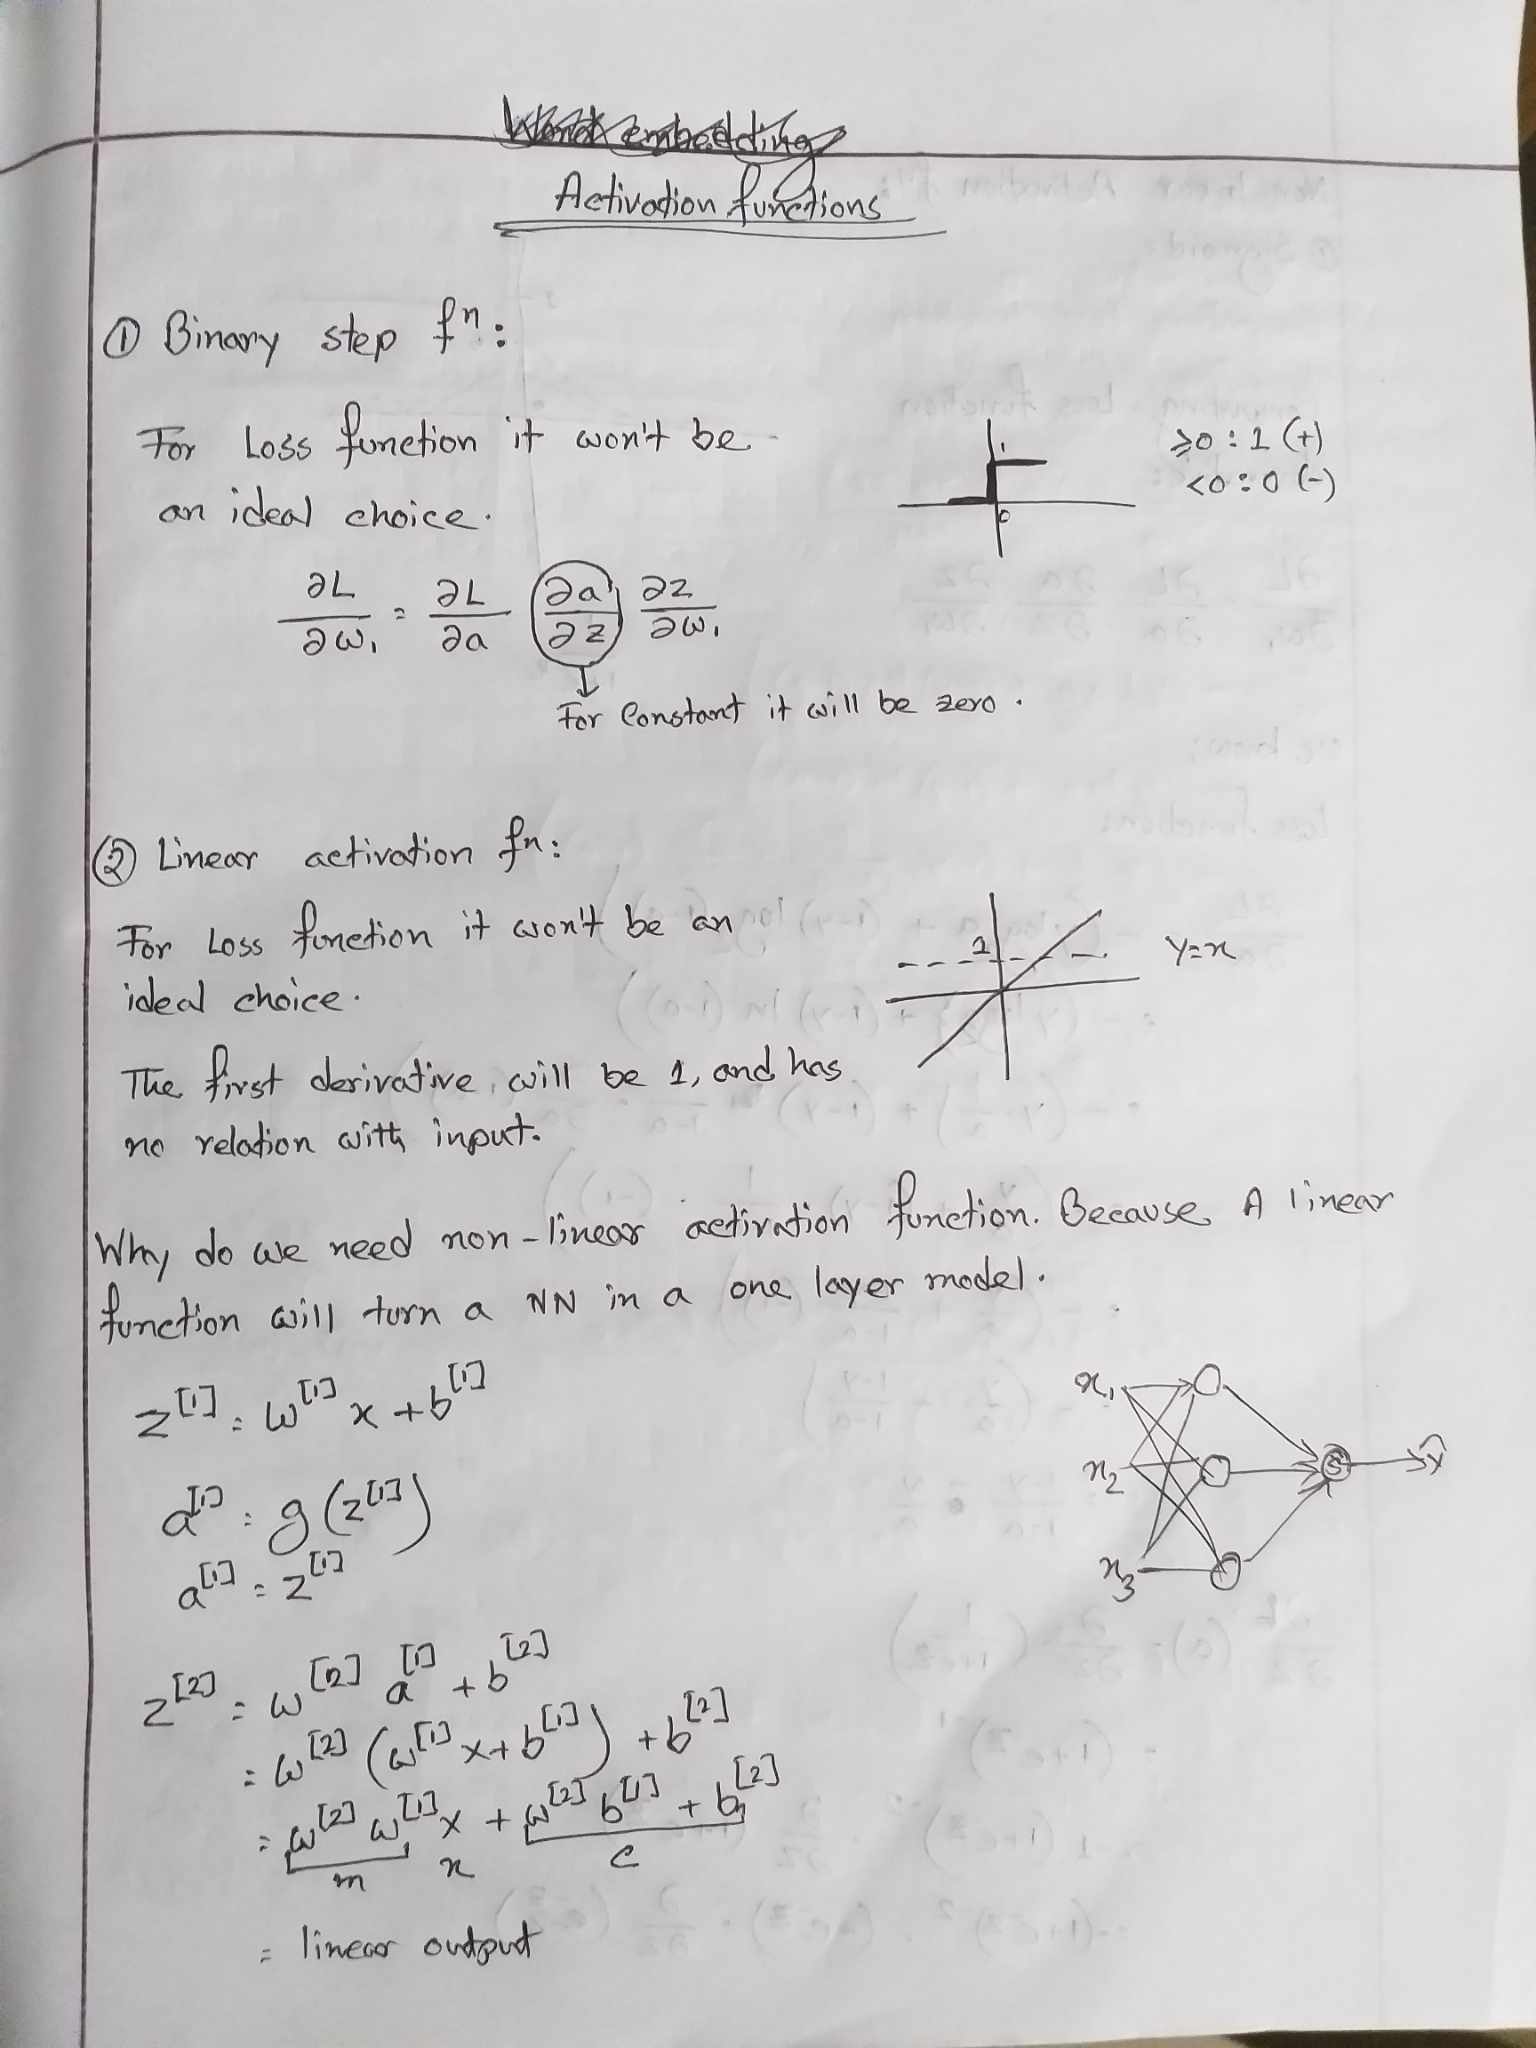 Activation functions
① Binary step fⁿ:
For Loss function it won't be
an ideal choice.
1
0
≥0 : 1 (+)
<0 : 0 (-)
∂L/∂w₁ = ∂L/∂a ∂a/∂z ∂z/∂w₁
For Constant it will be zero.
② Linear activation fn:
For Loss function it won't be an
ideal choice.
1
Y=x
The first derivative will be 1, and has
no relation with input.
Why do we need non-linear activation function. Because A linear
function will turn a NN in a one layer model.
z[1] = w[1] x + b[1]
a[1] = g(z[1])
a[1] = z[1]
x₁
x₂
x₃
S
ŷ
z[2] = w[2] a[1] + b[2]
= w[2] (w[1] x + b[1]) + b[2]
= w[2] w[1] x + w[2] b[1] + b[2]
m x c
= linear output